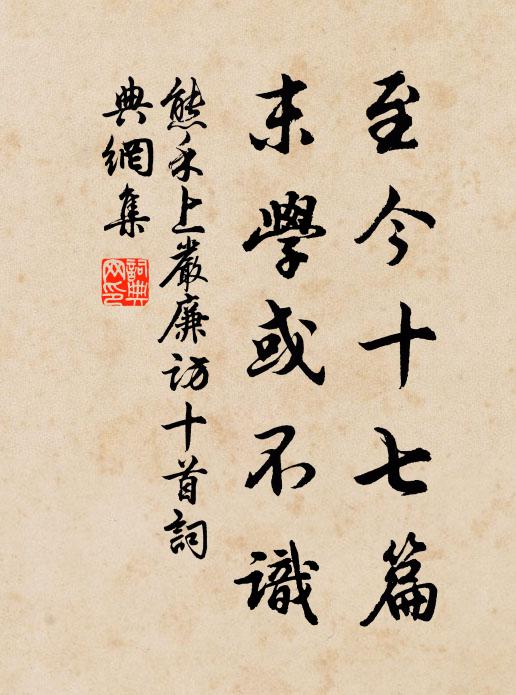 至今十七篇
末學或不識
熊禾上嚴廉訪十首詞
典網集
詞典
网印